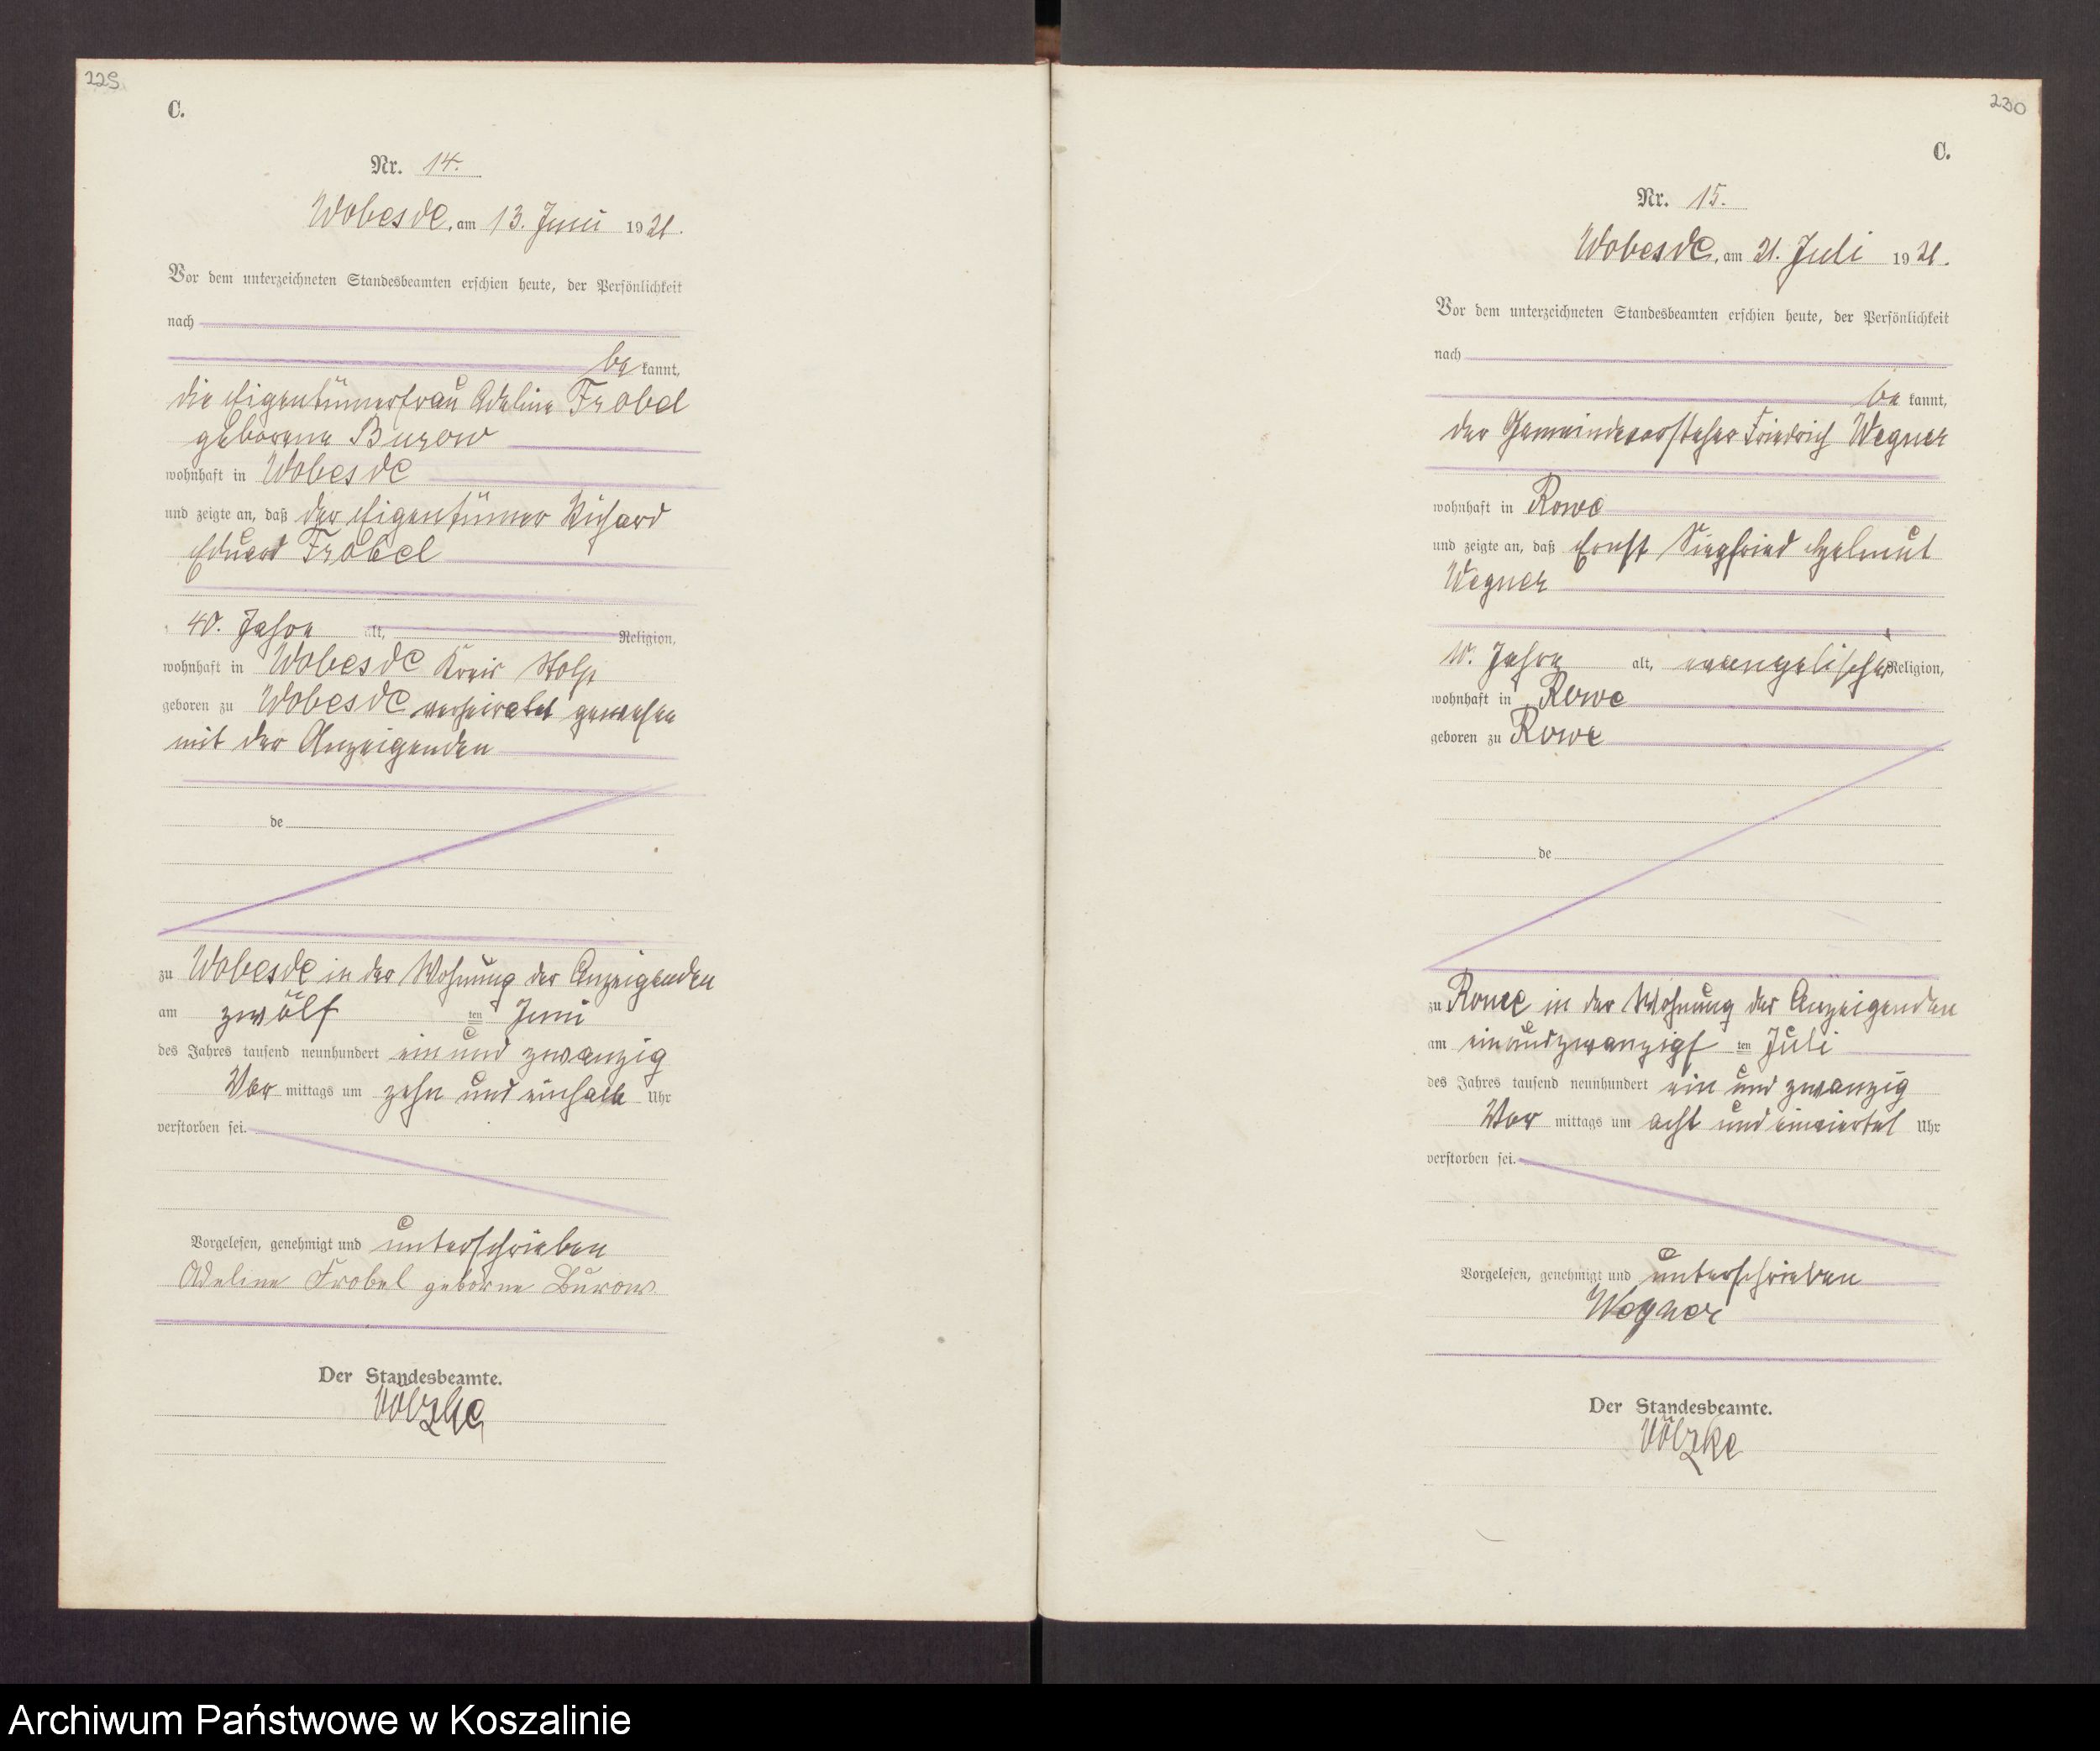 229
C.
Nr. 14.
Wobesde, am 13. Juni 1921.
Vor dem unterzeichneten Standesbeamten erschien heute, der Persönlichkeit
nach
be kannt,
die Eigentümerfrau Adeline Frobel
geborene Burow
wohnhaft in Wobesde
und zeigte an, daß der Eigentümer Richard
Eduard Frobel
40. Jahre alt, Religion,
wohnhaft in Wobesde Kreis Stolp
geboren zu Wobesde verheiratet gewesen
mit der Anzeigenden
de
zu Wobesde in der Wohnung der Anzeigenden
am zwölf ten Juni
des Jahres tausend neunhundert ein und zwanzig
Vor mittags um zehn und einhalb Uhr
verstorben sei.
Vorgelesen, genehmigt und unterschrieben
Adeline Frobel geborne Burow
Der Standesbeamte.
Völzke
230
C.
Nr. 15.
Wobesde, am 21. Juli 1921.
Vor dem unterzeichneten Standesbeamten erschien heute, der Persönlichkeit
nach
be kannt,
der Gemeindevorsteher Friedrich Wegner
wohnhaft in Rowe
und zeigte an, daß Ernst Siegfried Helmut
Wegner
10. Jahre alt, evangelischer Religion,
wohnhaft in Rowe
geboren zu Rowe
de
zu Rowe in der Wohnung des Anzeigenden
am einundzwanzigs ten Juli
des Jahres tausend neunhundert ein und zwanzig
Vor mittags um acht und einviertel Uhr
verstorben sei.
Vorgelesen, genehmigt und unterschrieben
Wegner
Der Standesbeamte.
Völzke
Archiwum Państwowe w Koszalinie